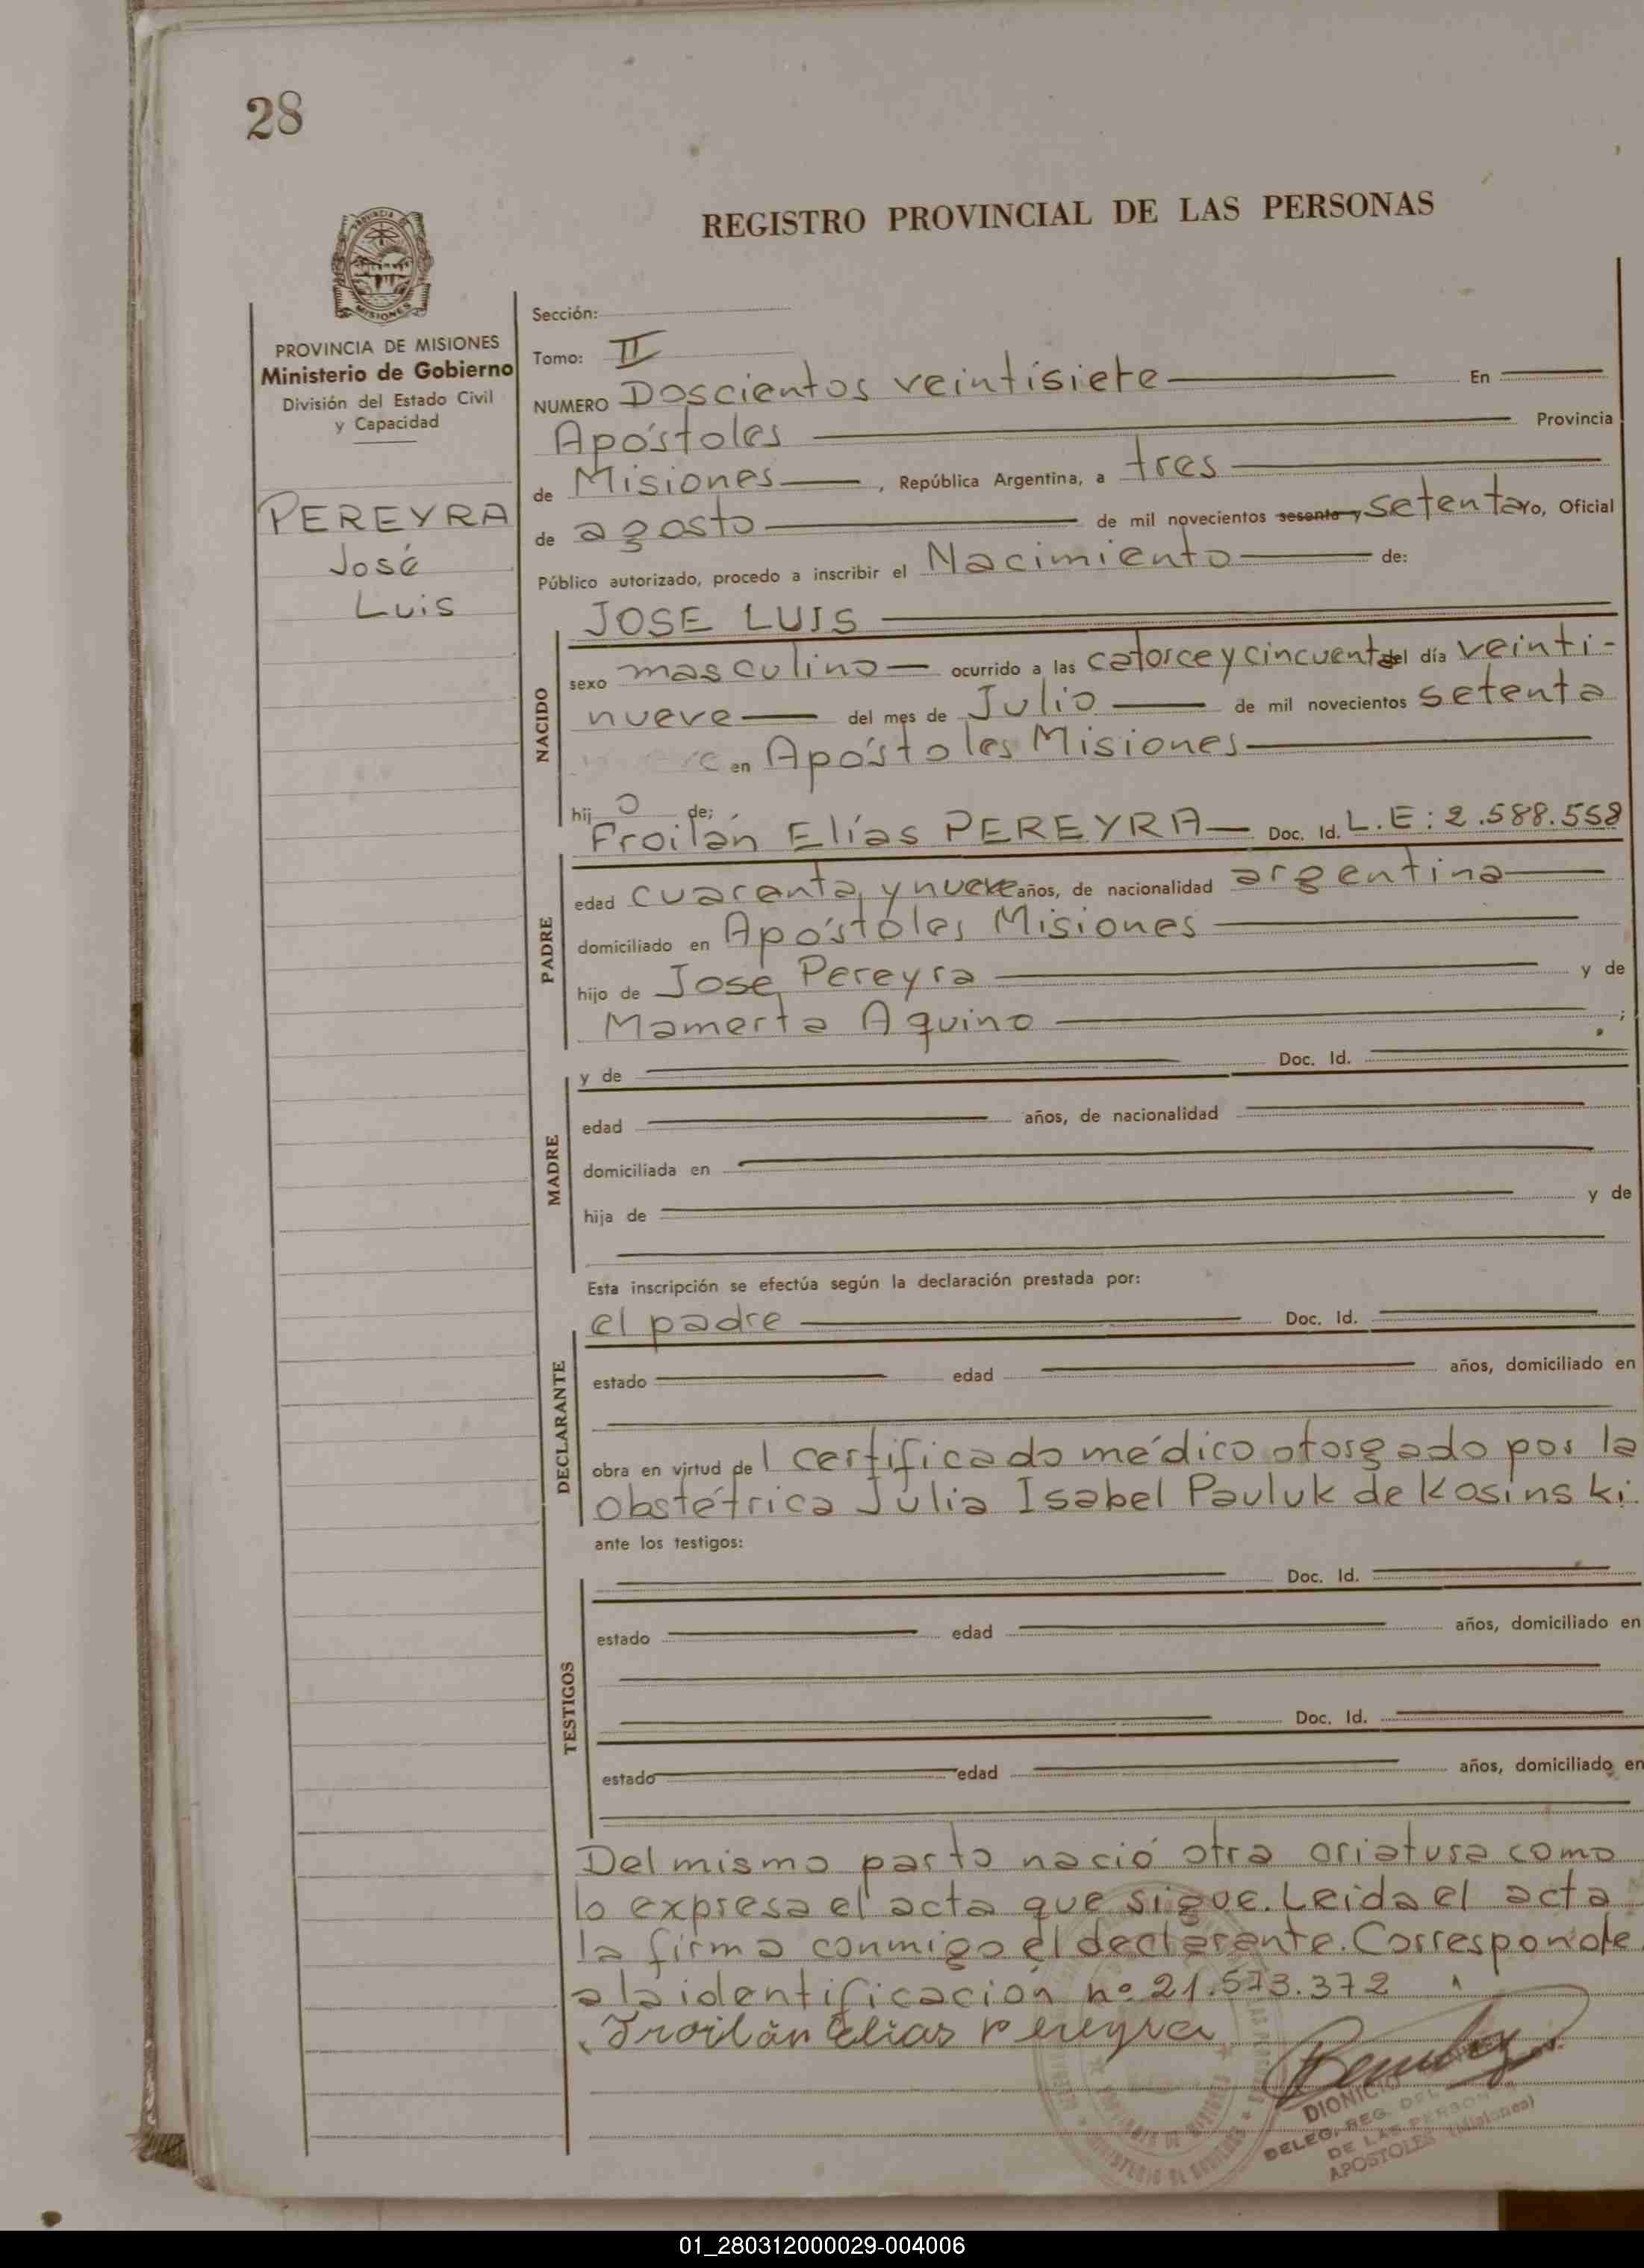 28
REGISTRO PROVINCIAL DE LAS PERSONAS
MISIONES
PROVINCIA DE MISIONES
Ministerio de Gobierno
División del Estado Civil
y Capacidad
PEREYRA
José
Luis
Sección:
Tomo: II
NUMERO Doscientos veintisiete En
Apóstoles Provincia
de Misiones, República Argentina, a tres
de agosto de mil novecientos sesenta y setenta yo, Oficial
Público autorizado, procedo a inscribir el Nacimiento de:
JOSE LUIS
NACIDO
sexo masculino ocurrido a las catorce y cincuenta del día veinti-
nueve del mes de Julio de mil novecientos setenta
en Apóstoles Misiones
hijo de:
Froilán Elías PEREYRA Doc. Id. L.E: 2.588.558
PADRE
edad cuarenta y nueve años, de nacionalidad argentina
domiciliado en Apóstoles Misiones
hijo de José Pereyra y de
Mamerta Aquino ;
MADRE
y de Doc. Id.
edad años, de nacionalidad
domiciliada en
hija de y de
Esta inscripción se efectúa según la declaración prestada por:
el padre Doc. Id.
DECLARANTE
estado edad años, domiciliado en
obra en virtud del certificado médico otorgado por la
obstétrica Julia Isabel Pauluk de Kosinski.
ante los testigos:
TESTIGOS
Doc. Id.
estado edad años, domiciliado en
Doc. Id.
estado edad años, domiciliado en
Del mismo parto nació otra criatura como
lo expresa el acta que sigue. Leída el acta
la firma conmigo el declarante. Corresponde
a la identificación nº 21.573.372
Froilán Elias Pereyra
DIONICIO
DELEG. REG. DEL
DE LAS PERSONAS
APOSTOLES (Misiones)
01_280312000029-004006